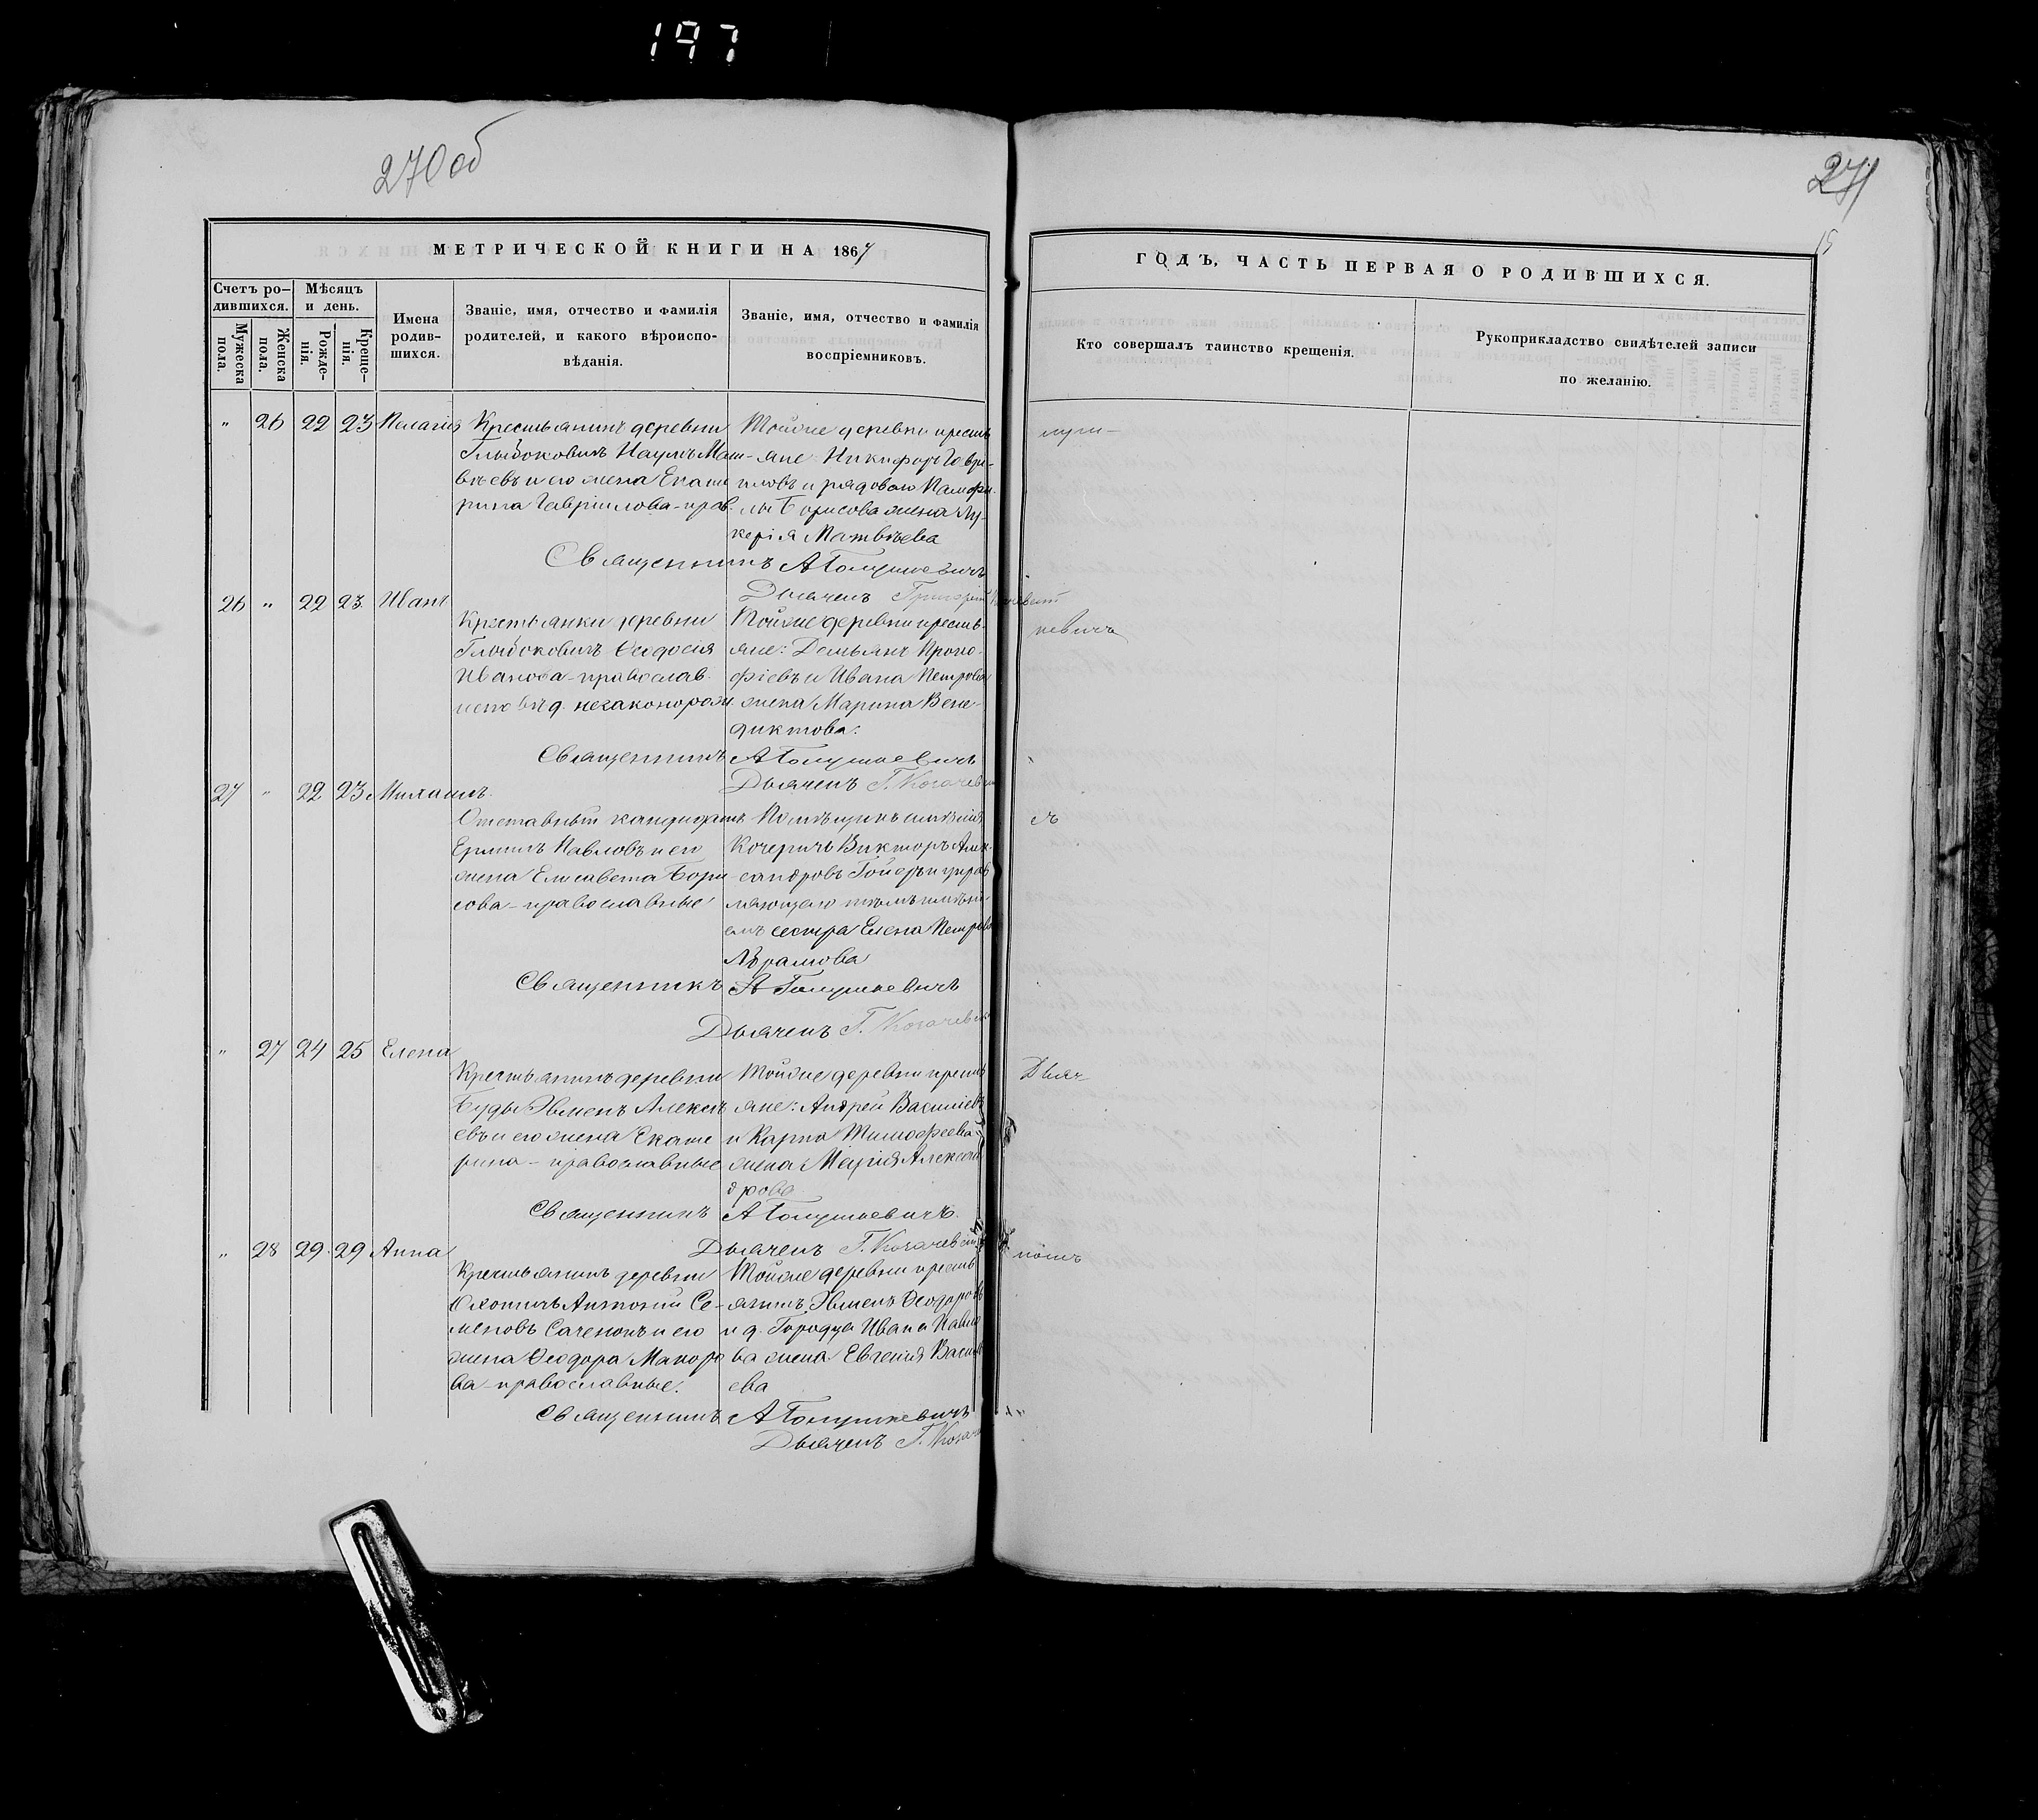 197
270 об
271
15
МЕТРИЧЕСКОЙ КНИГИ НА 1867
Счетъ ро-
дившихся.
Мужеска
пола.
Женска
пола.
Мѣсяцъ
и день.
Рожде-
нія.
Креще-
нія.
Имена
родив-
шихся.
Званіе, имя, отчество и фамилія
родителей, и какого вѣроиспо-
вѣданія.
Званіе, имя, отчество и фамилія
воспріемниковъ.
ГОДЪ, ЧАСТЬ ПЕРВАЯ О РОДИВШИХСЯ.
Кто совершалъ таинство крещенія.
Рукоприкладство свидѣтелей записи
по желанію.
" 26 22 23 Пелагія
Крестьянинъ деревни
Глыбоковичъ Наумъ Мат-
вѣевъ и его жена Екате
рина Гавріилова - прав.
Тойже деревни кресть
яне: Никифоръ Гаврі-
иловъ и рядоваго Памфи-
лы Борисова жена Лу-
керія Матвѣева
Священникъ А
Дьячекъ Григорій
26 " 22 23.
Крестьянки деревни
Глыбоковичъ Ѳеодосія
Иванова - православ.
исповѣд. незаконорож
Тойже деревни кресть-
яне: Демьянъ Проко-
фіевъ и Ивана Петрова
жена Марина Вене-
диктова.
Священникъ А
Дьячекъ Г.
27 " 22 23 Михаилъ.
Отставный кандидатъ
Ермилъ Павловъ и его
жена Елисавета Бори
сова - православные
Помѣщикъ имѣнія
Кочеричъ Викторъ Алек-
сандровъ Гойеръ и управ
ляющаго тѣмъ имѣні
емъ сестра Елена Петрова
Абрамова
Священникъ А
Дьячекъ Г.
" 27 24 25 Елена
Крестьянинъ деревни
Буды Эвменъ Алексѣ
евъ и его жена Екате
рина - православные
Тойже деревни кресть
яне: Андрей Василіевъ
и Карпа Тимофеева
жена Марія Алексан
дрова
Священникъ А
Дьячекъ Г.
" 28 29. 29 Анна
Крестьянинъ деревни
Антоній Се-
меновъ Саченокъ и его
жена Ѳеодора Макаро
ва - православные.
Тойже деревни кресть
янинъ Эвменъ Ѳеодоровъ
и д. Городца Ивана Павло
ва жена Евгенія Василі
ева
Священникъ А
Дьячекъ Г.